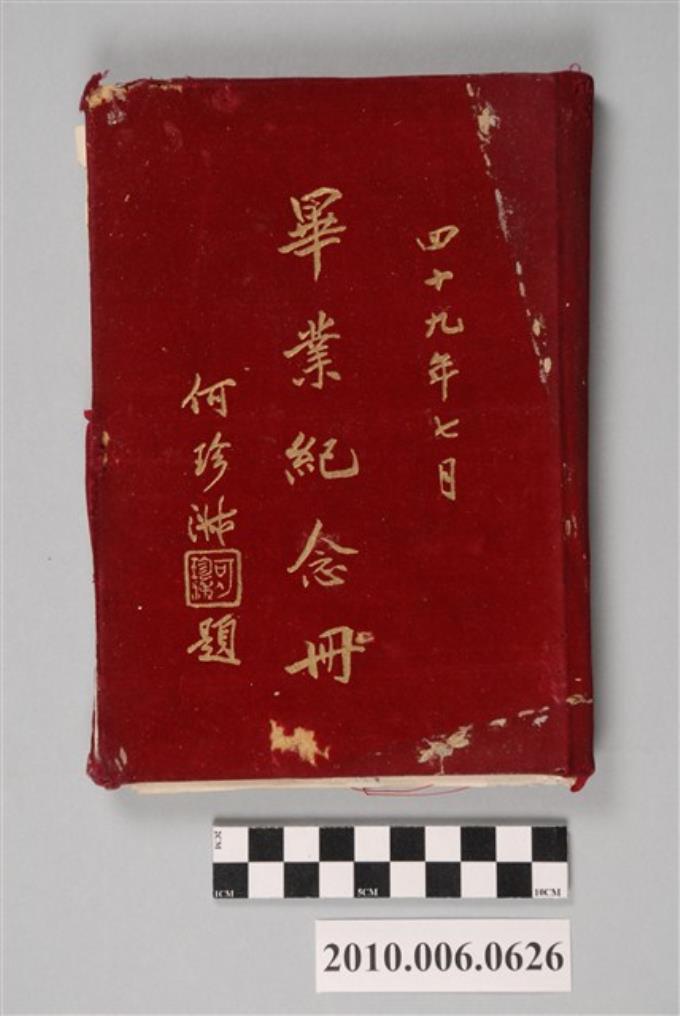 四十九年七月
畢業紀念冊
何珍
題
2CM
1CM 5CM 10CM
2010.006.0626